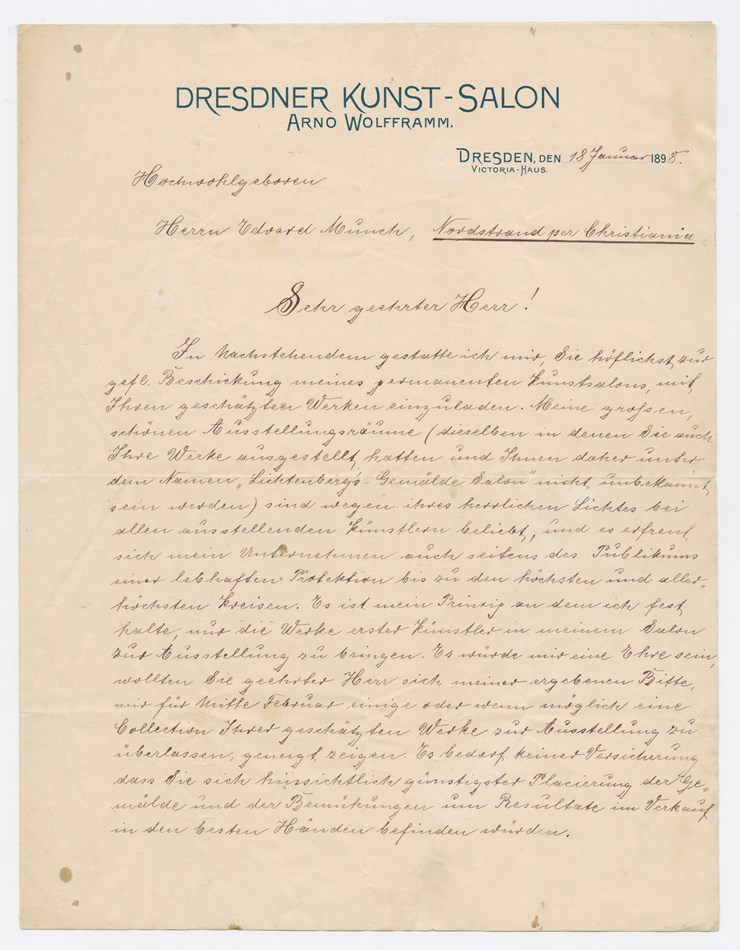 DRESDNER KUNST-SALON
ARNO WOLFFRAMM.
DRESDEN, DEN 18 Januar 1898.
VICTORIA-HAUS.
Hochwohlgeboren
Herrn Edvard Munch, Nordstrand per Christiania
Sehr geehrter Herr!
In Nachstehendem gestatte ich mir, Sie höflichst, zur
gefl. Beschickung meines permanenten Kunstsalons, mit
Ihren geschätzten Werken einzuladen. Meine grossen,
schönen Ausstellungsräume (dieselben in denen Sie auch
Ihre Werke ausgestellt hatten und Ihnen daher unter
dem Namen „Lichtenberg's Gemälde Salon" nicht unbekannt
sein werden) sind wegen ihres herrlichen Lichtes bei
allen ausstellenden Künstlern beliebt, und es erfreut
sich mein Unternehmen auch seitens des Publikums
einer lebhaften Protektion bis zu den höchsten und aller-
höchsten Kreisen. Es ist mein Prinzip an dem ich fest
halte, nur die Werke erster Künstler in meinem Salon
zur Ausstellung zu bringen. Es würde mir eine Ehre sein,
wollten Sie geehrter Herr sich meiner ergebenen Bitte,
mir für Mitte Februar einige oder wenn möglich eine
Collection Ihrer geschätzten Werke zur Ausstellung zu
überlassen, geneigt zeigen. Es bedarf keiner Versicherung
dass Sie sich hinsichtlich günstigster Placierung der Ge-
mälde und der Bemühungen um Resultate im Verkauf
in den besten Händen befinden würden.